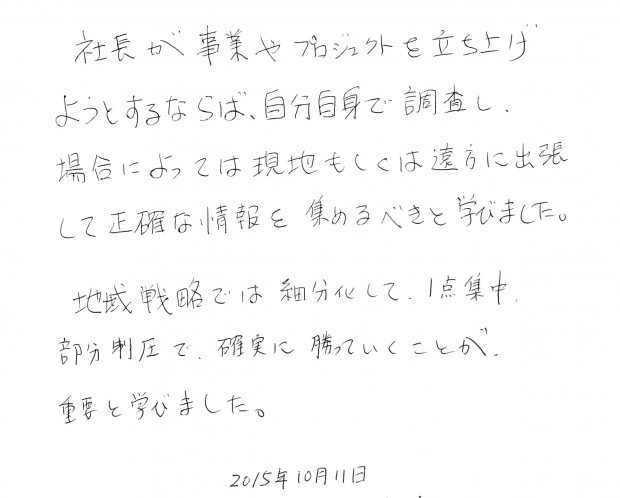 社長が事業やプロジェクトを立ち上げ
ようとするならば、自分自身で調査し、
場合によっては現地もしくは遠方に出張
して正確な情報を集めるべきと学びました。
地域戦略では細分化して、1点集中、
部分制圧で、確実に勝っていくことが、
重要と学びました。
2015年10月11日